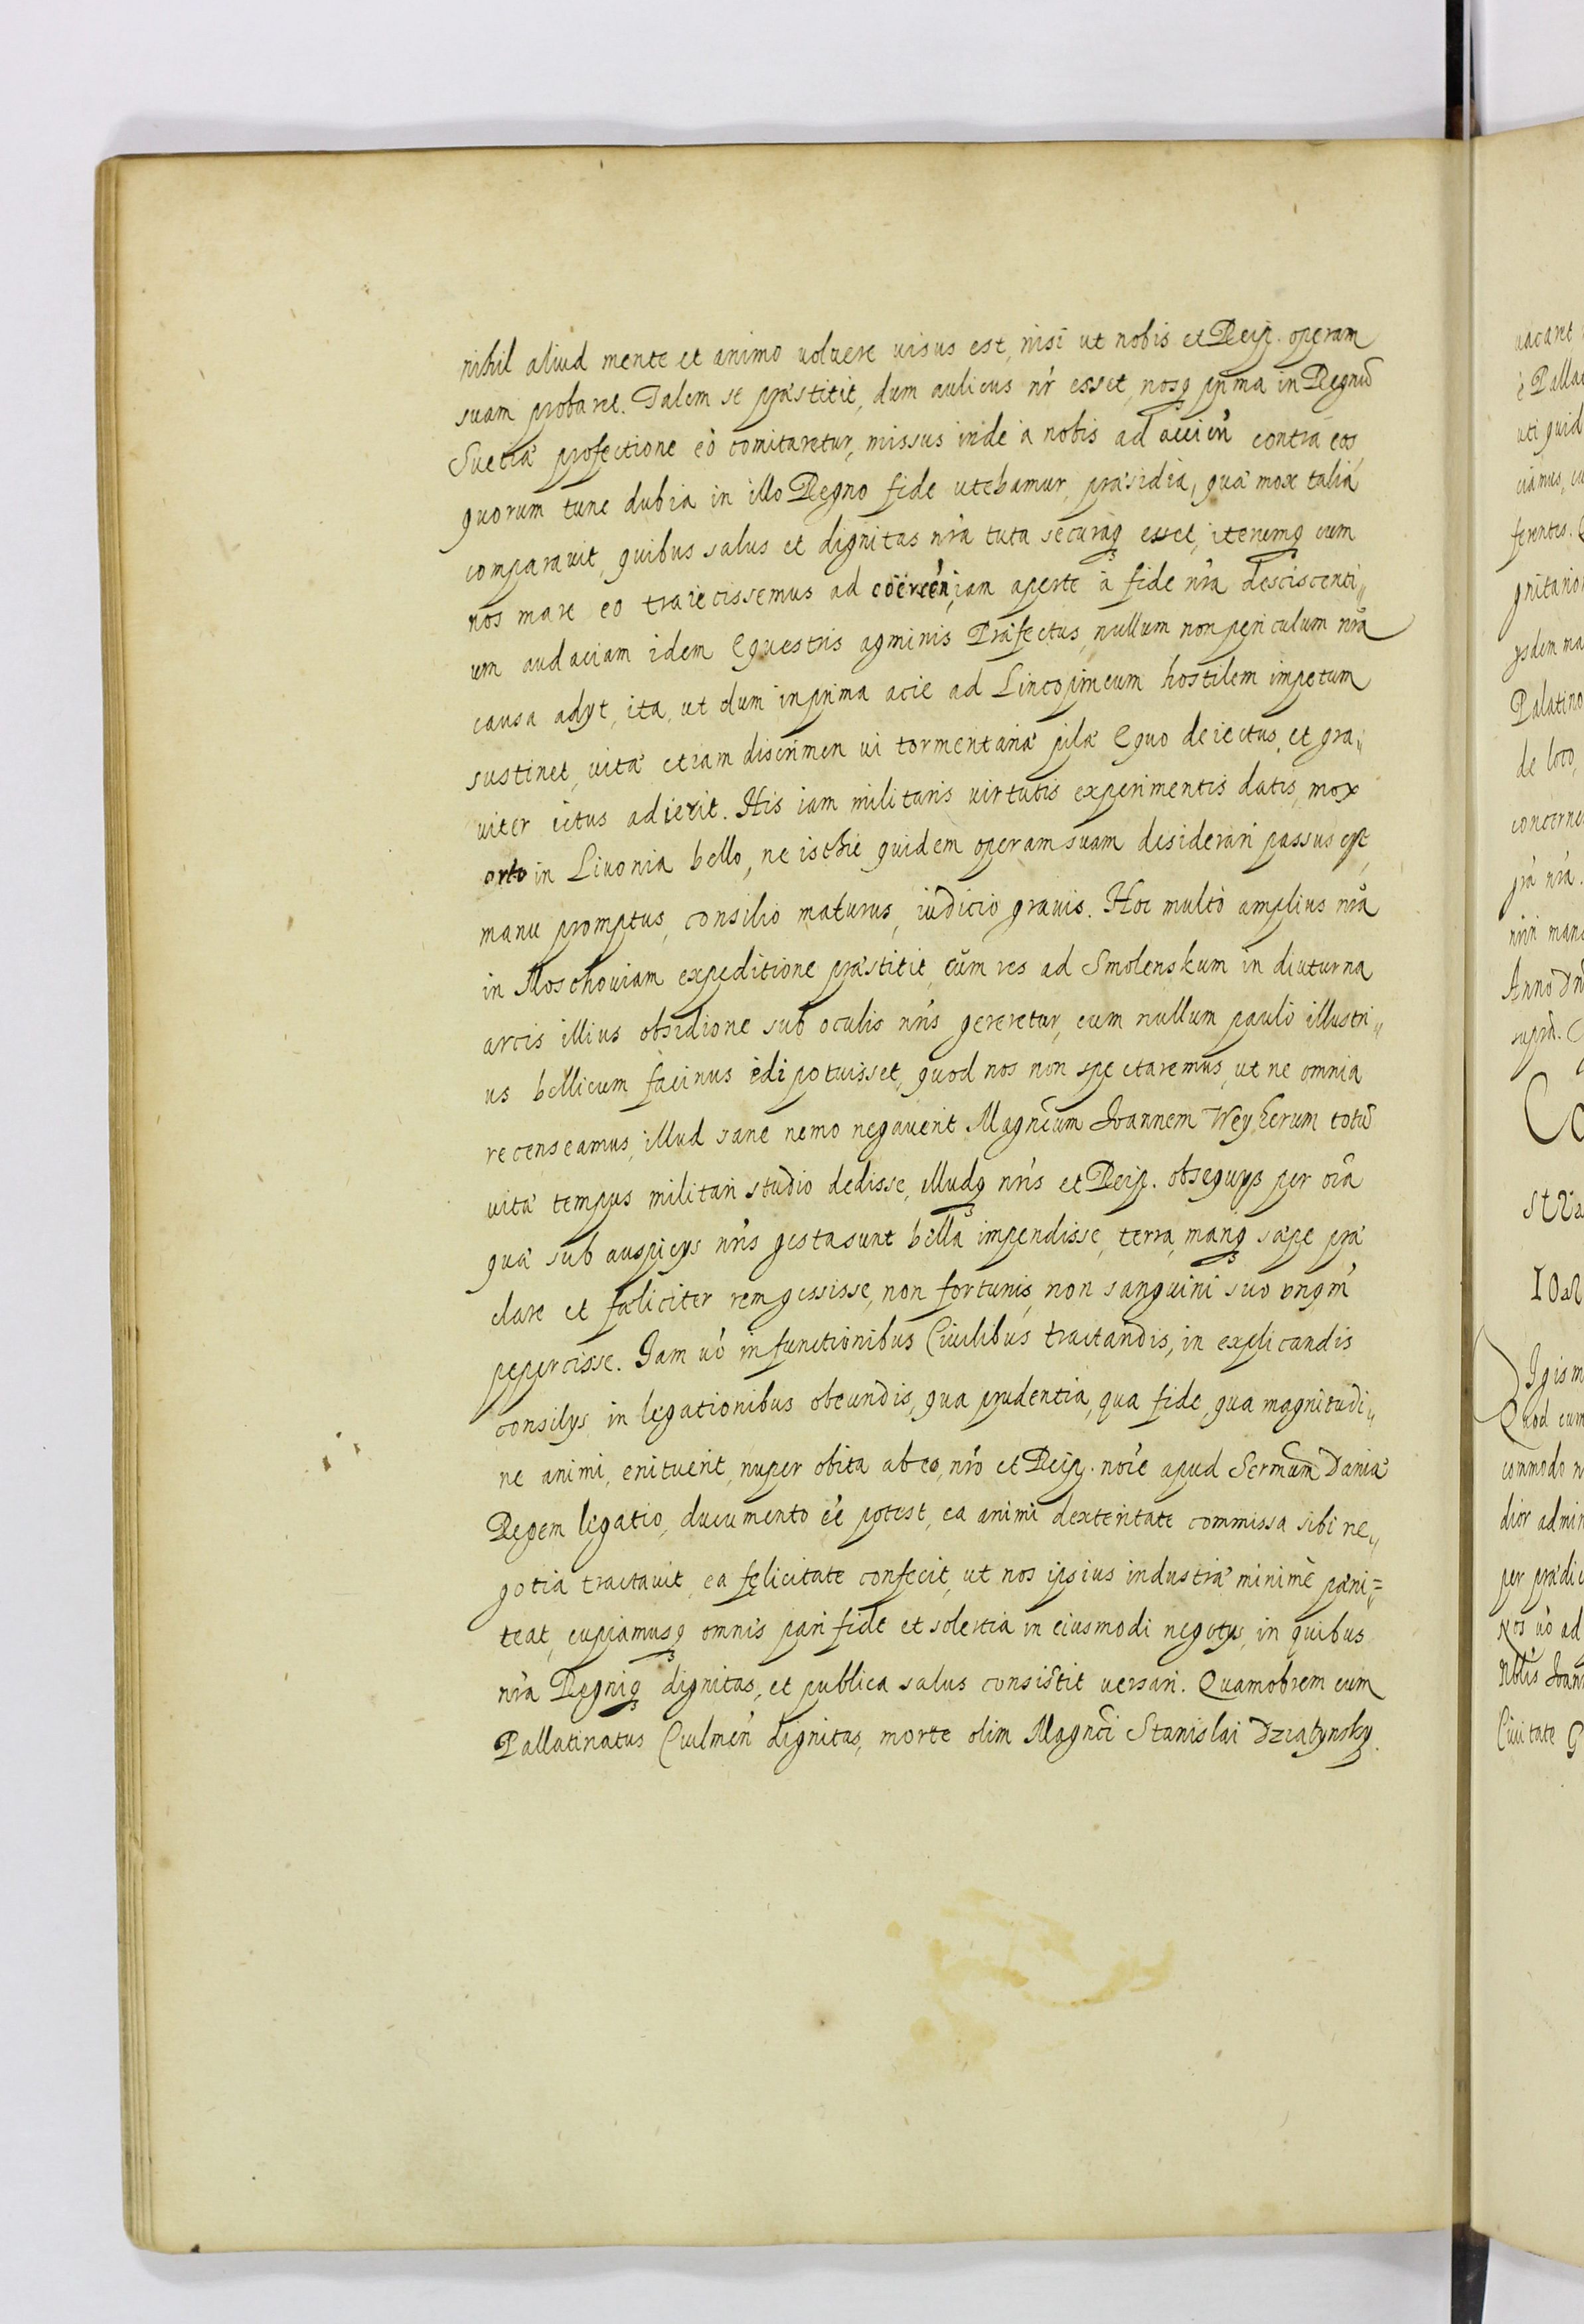 nihil aliud mente et animo voluere uisus est, nisi ut nobis et Reip. operam
suam probaret. Talem se præstitit, dum aulicus nr̃ esset, nosq prima in Regnũ
Suetiæ profectione eò comitaretur, missus inde à nobis ad acciẽn contra eos,
quorum tunc dubia in illo Regno fide utebamur, præsidia, quæ mox talia
comparauit, quibus salus et dignitas nr̃a tuta securaq esset, iterumq cum
nos mare eo traiecissemus ad coërcẽn, iam aperte à fide nr̃a desciscenti„
um audaciam idem Equestris agminis Præfectus, nullum non periculum nr̃a
causa adyt, ita, ut dum in prima acie ad Lincopincum hostilem impetum
sustinet, uitæ etiam discrimen ui tormentariæ pilæ Equo deiectus, et gra„
uiter ictus adierit. His iam militaris uirtutis experimentis datis, mox
orto in Liuonia bello, ne isthic quidem operam suam desiderari passus est,
manu promptus, consilio maturus, iudicio grauis. Hoc multò amplius nr̃a
in Moschouiam expeditione præstitit, cũm res ad Smolenskum in diuturna
arcis illius obsidione sub oculis nr̃is gereretur, cum nullum paulò illustri„
us bellicum facinus edi potuisset, quod nos non spectaremus, ut ne omnia
recenseamus, illud sane nemo negauerit Magñcum Joannem Weyherum totũ
uitæ tempus militari studio dedisse, illudq nr̃is et Reip. obsequys per oĩa
quæ sub auspicys nr̃is gesta sunt bella impendisse, terra, mariq sæpe præ
clare et fœliciter rem gessisse, non fortunis, non sanguini suo unqm̃
pepercisse. Jam uò in functionibus Ciuilibus tractandis, in explicandis
consilys in legationibus obeundis, qua prudentia, qua fide, qua magnitudi„
ne animi, enituerit, nuper obita ab eo, nr̃o et Reip. noĩe apud Serm̃um Daniæ
Regem legatio, ducumento ẽe potest, ea animi dexteritate commissa sibi ne„
gotia tractauit, ea felicitate confecit, ut nos ipsius industriæ minimè pæni=
teat, cupiamusq omnis pari fide et solertia in eiusmodi negotys, in quibus
nr̃a Regniq dignitas, et publica salus consistit uersari. Quamobrem cum
Pallatinatus Culmeñ dignitas, morte olim Magnc̃i Stanislai Dzialynsky.